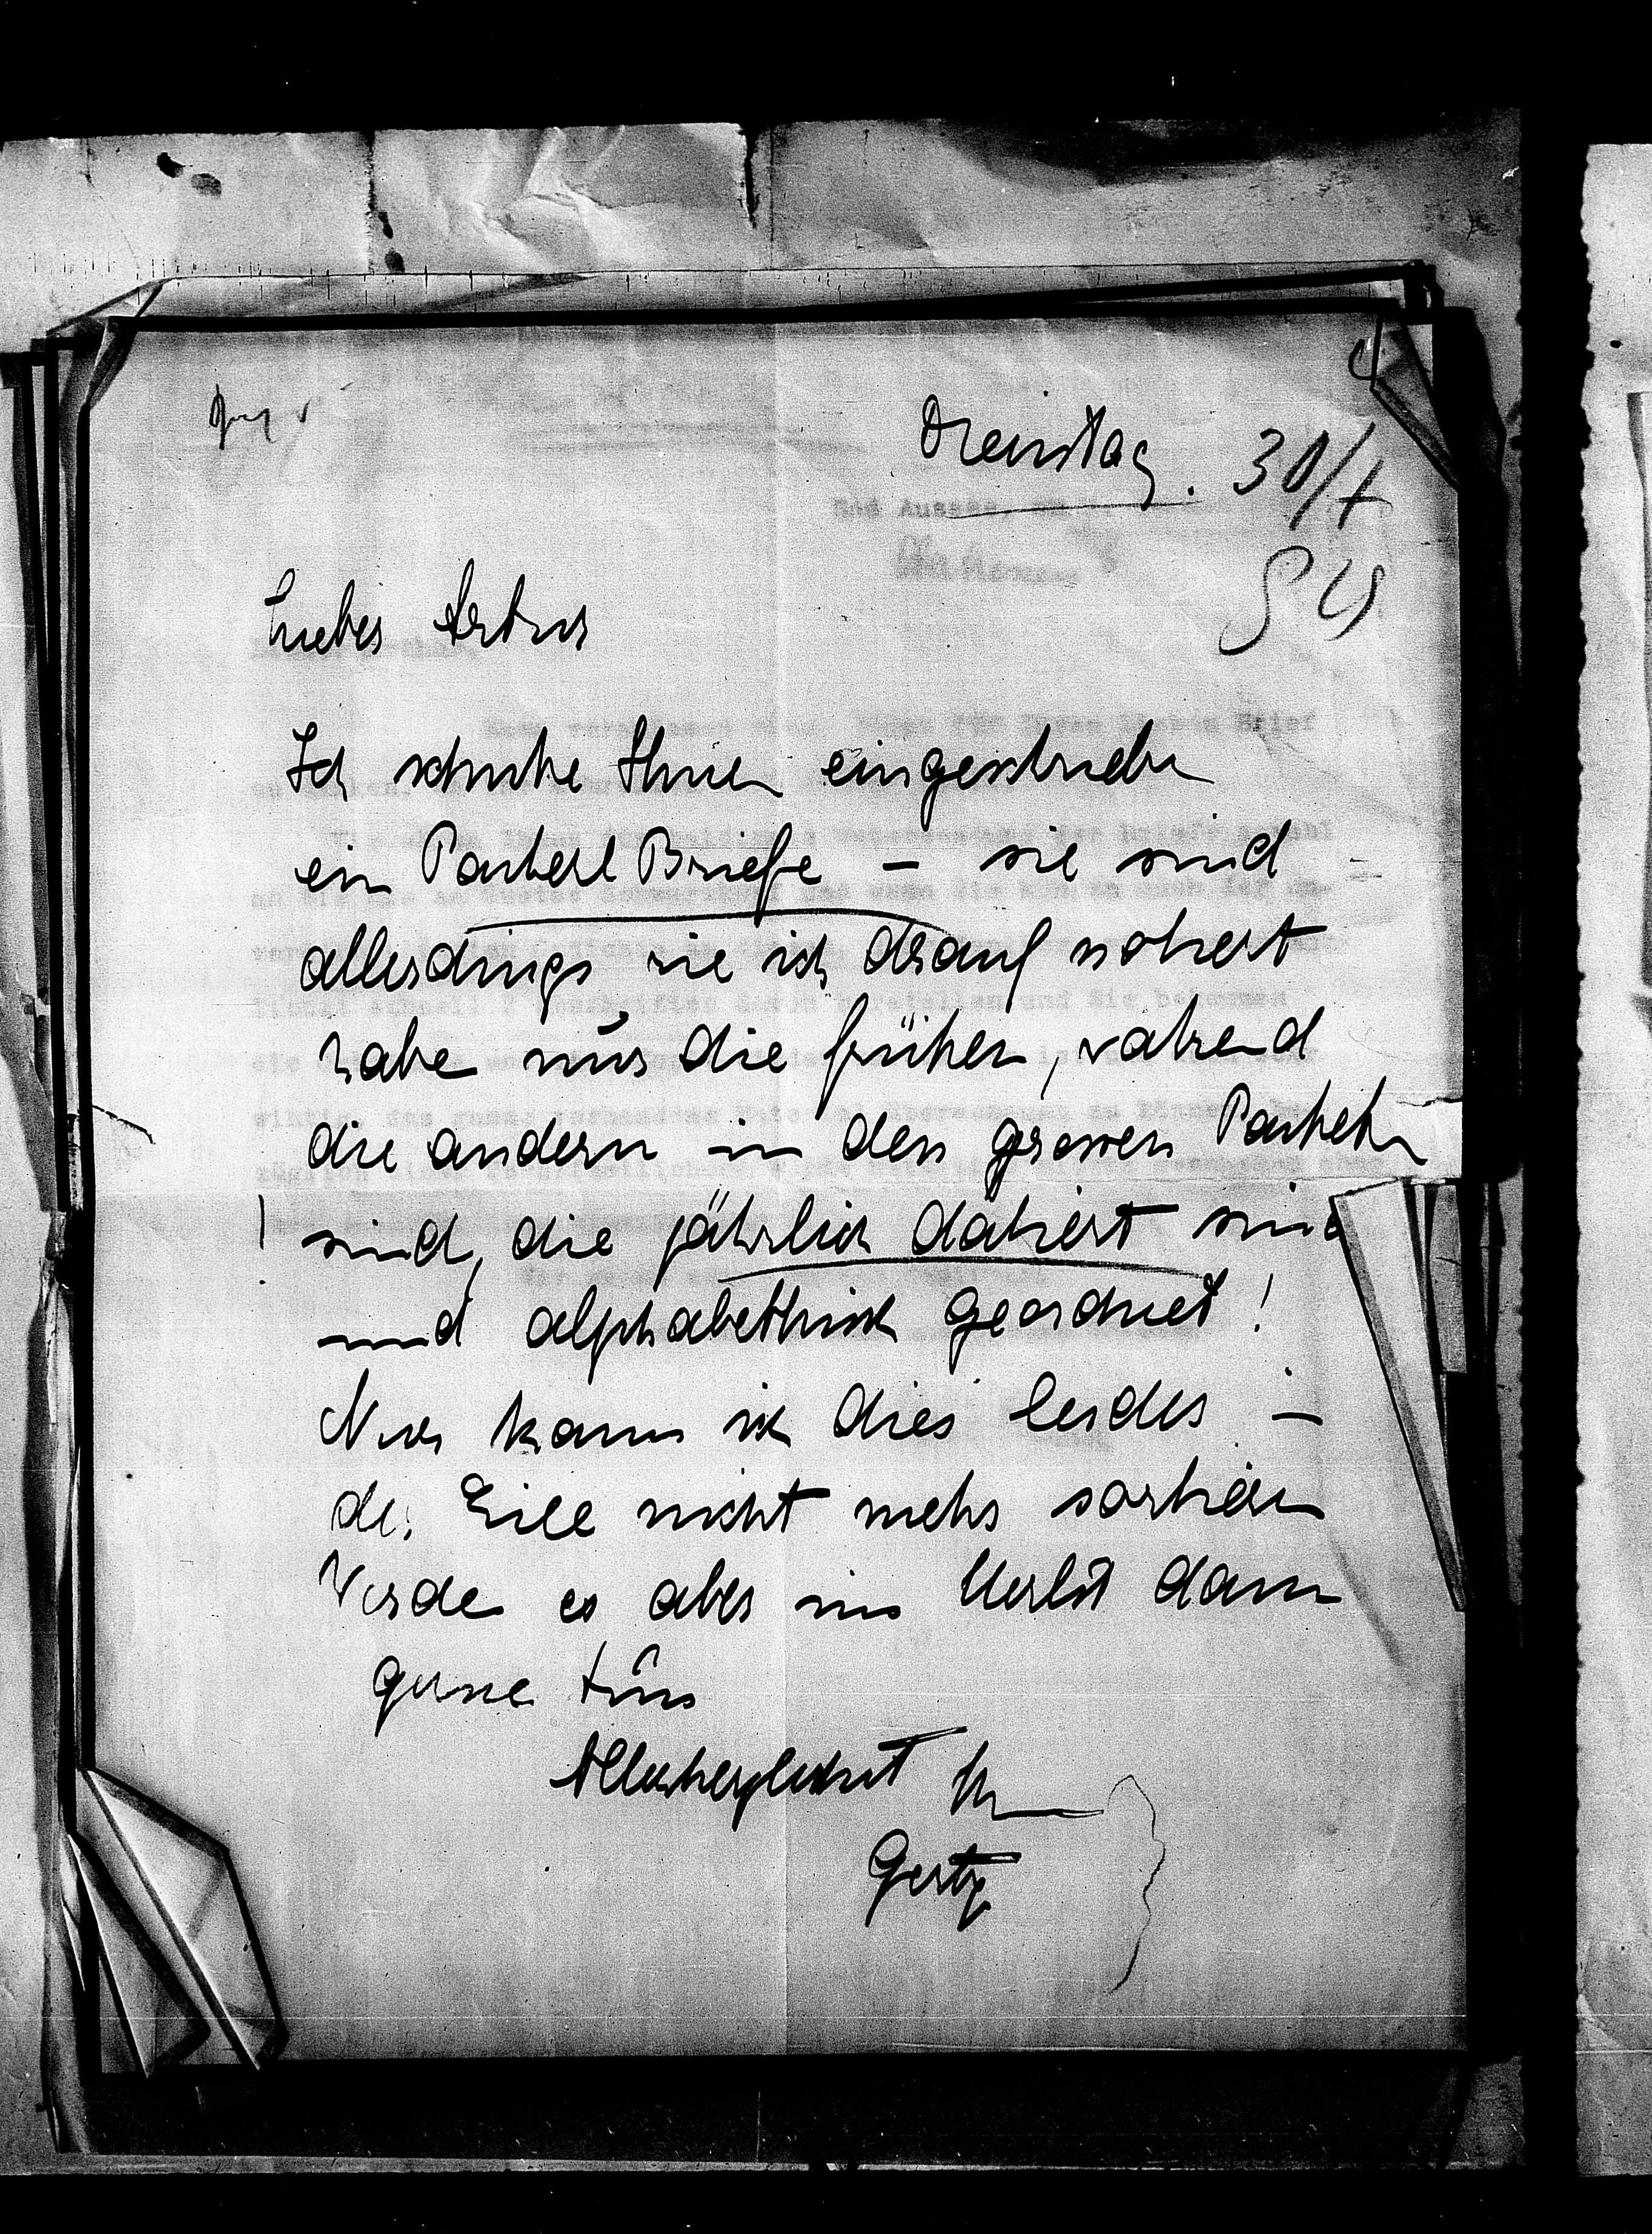 Dienstag. 30/7
Lieber Artur
Ich schicke Ihnen eingeschrieben
ein Packerl Briefe – sie sind
allerdings wie ich drauf notiert
habe nur die frühen, während
die andern in den grossen Packeten
! sind, die jährlich datiert sind
und alphabethisch geordnet!
Nur kann ich dies leider in
der Eile nicht mehr sortieren
Werde es aber im Herbst dann
gerne tun
Allerherzlichst Ihre
Gerty